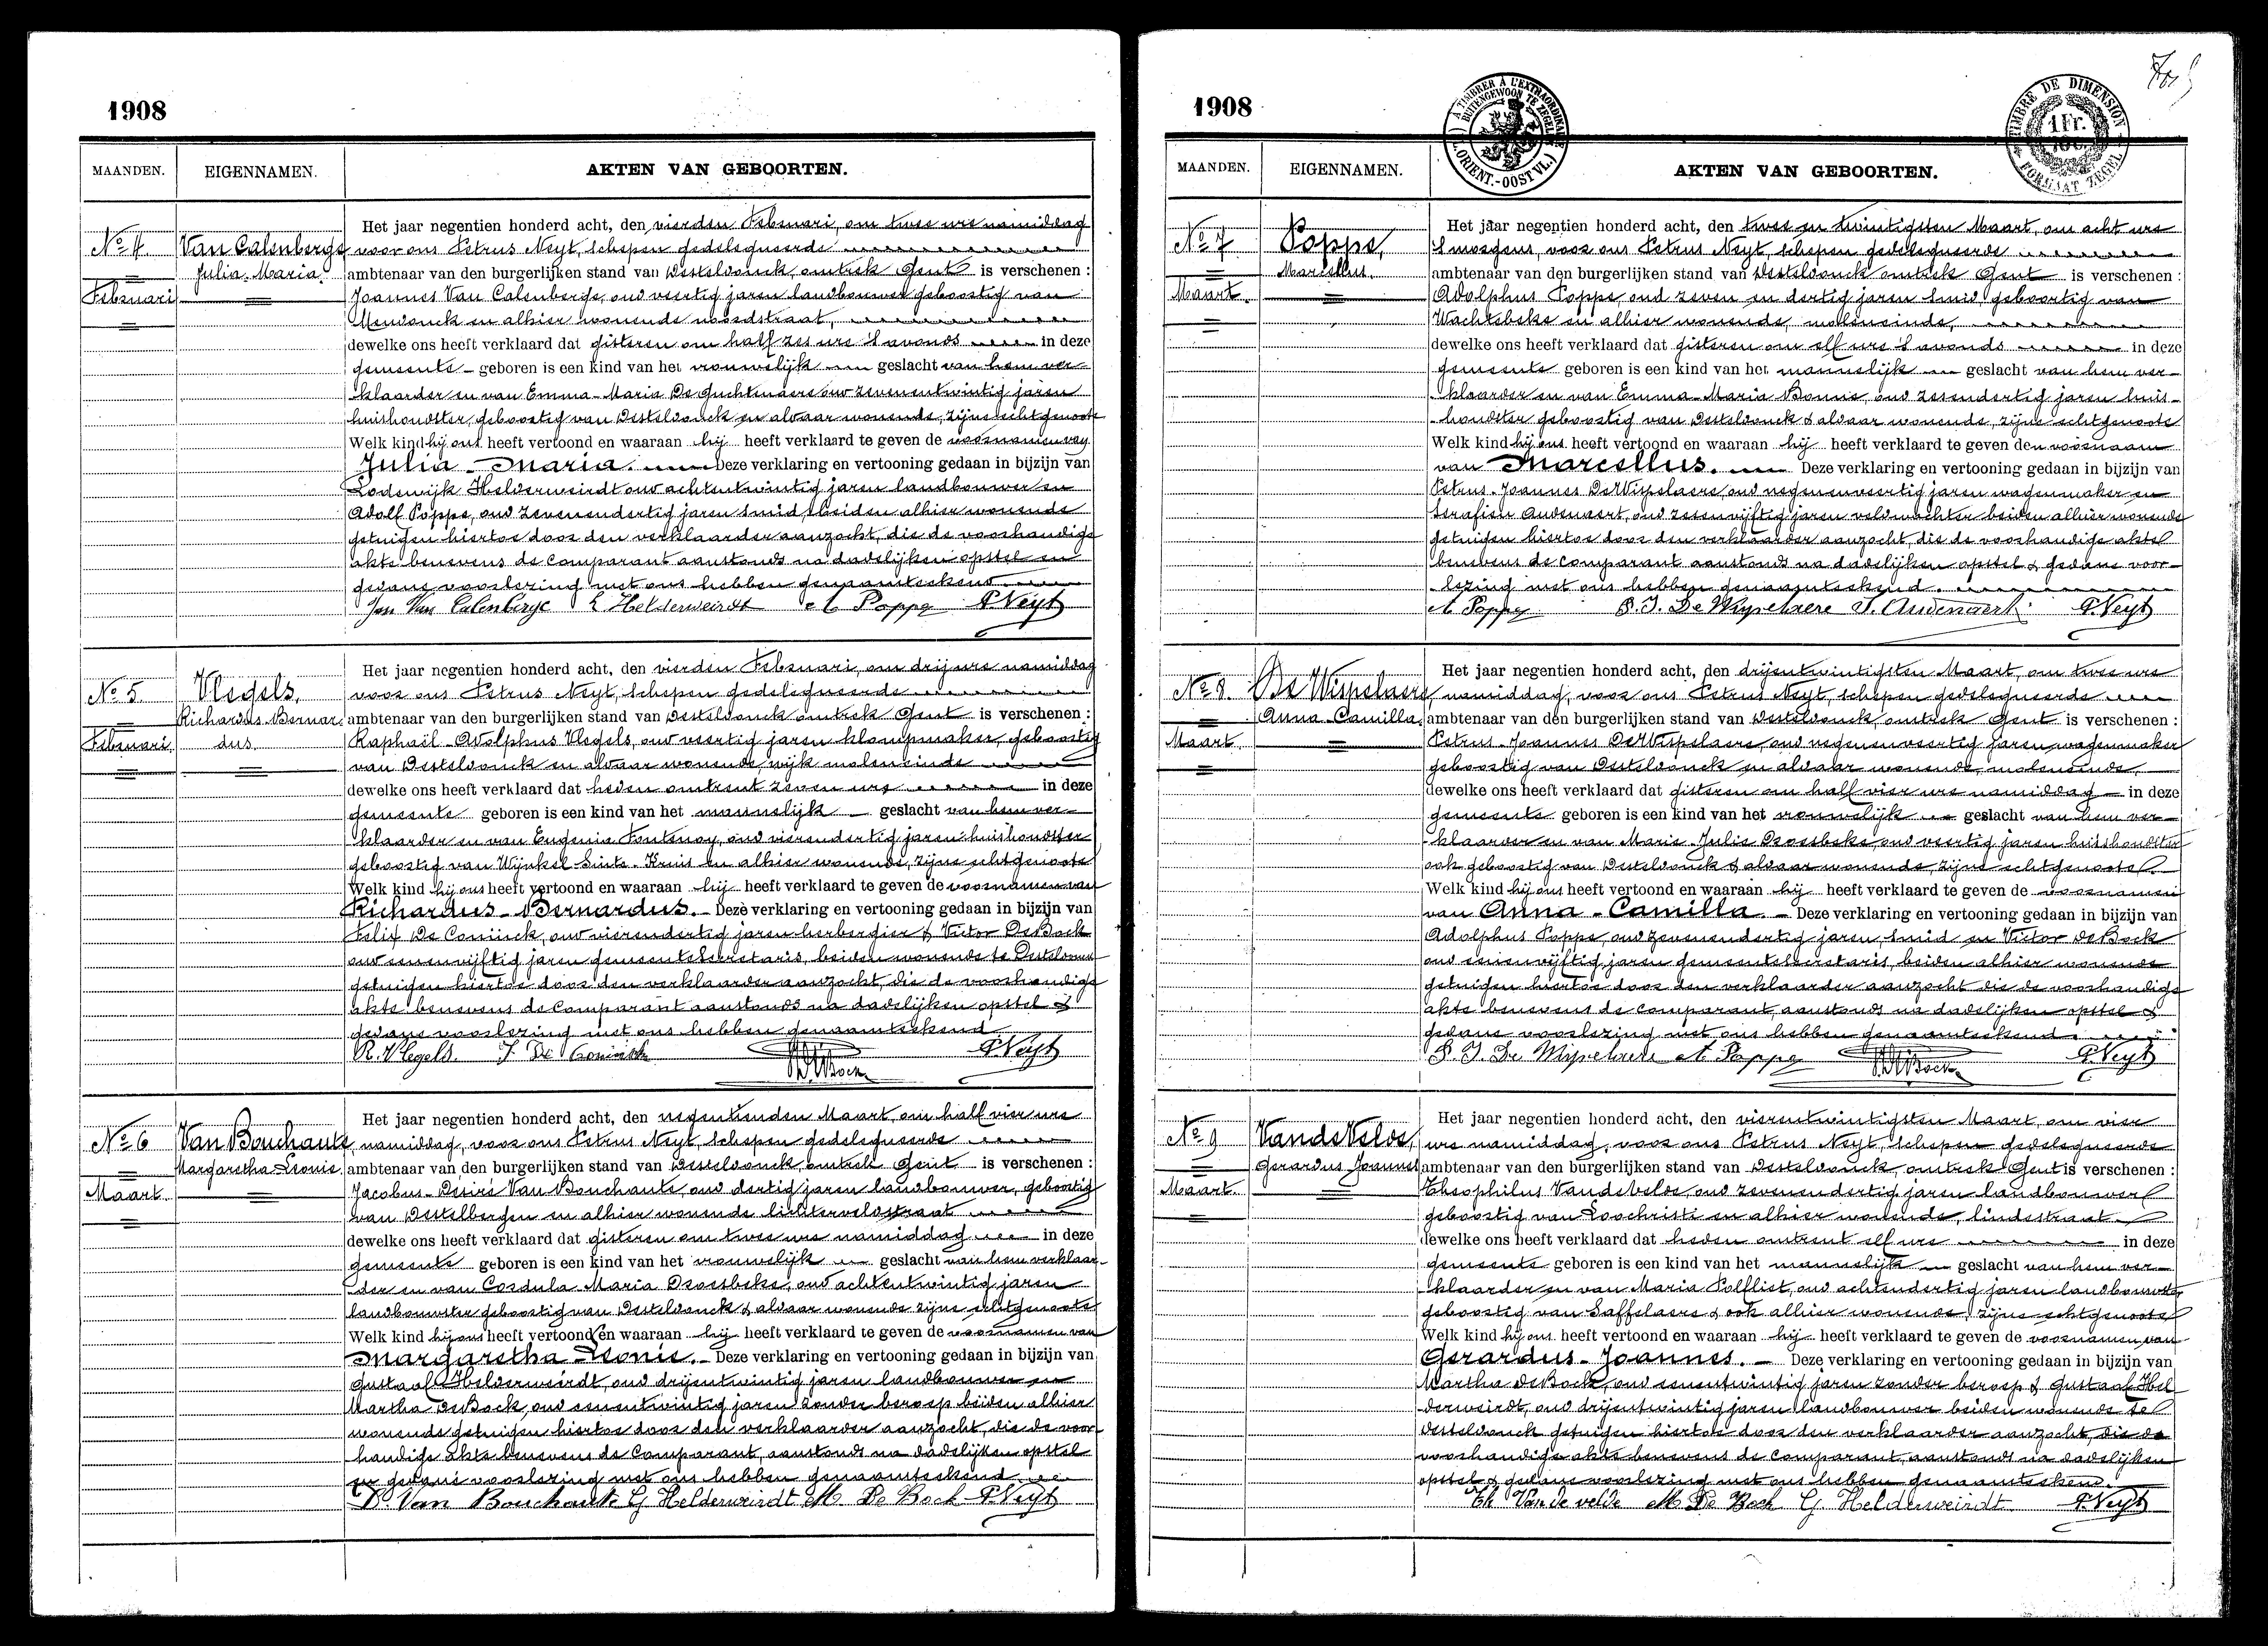 1908
MAANDEN. EIGENNAMEN. AKTEN VAN GEBOORTEN.
Het jaar negentien honderd acht, den vierden Februari, om twee ure namiddag
No 4. Van Calenberge voor ons Petrus Neyt, schepen gedelegueerde
Julia Maria. ambtenaar van den burgerlijken stand van Desteldonck, omtrek Gent is verschenen :
Februari Joannes Van Calenberge, oud veertig jaren landbouwer geboortig van
Mendonck en alhier wonende noordstraat,
dewelke ons heeft verklaard dat gisteren om half zes ure 's avonds in deze
gemeente geboren is een kind van het vrouwelijk geslacht van hem ver-
klaarder en van Emma-Maria De Guchtenaere oud zevenentwintig jaren
huishoudster, geboortig van Desteldonck en aldaar wonende, zijne echtgenoote
Welk kind hij ons heeft vertoond en waaraan hij heeft verklaard te geven de voornamen van
Julia-Maria. Deze verklaring en vertooning gedaan in bijzijn van
Lodewijk Helderweirdt oud achtentwintig jaren landbouwer en
Adolf Poppe, oud zevenendertig jaren smid, beiden alhier wonende
getuigen hiertoe door den verklaarder aanzocht, die de voorhandige
akte benevens de comparant aanstonds na dadelijken opstel en
gedane voorlezing met ons hebben genaamteekend.
Jan Van Calenberge L Helderweirdt A Poppe P. Neyt
Het jaar negentien honderd acht, den vierden Februari, om drij ure namiddag
No 5. Vlegels, voor ons Petrus Neyt, schepen gedelegueerde
Richardus-Bernar- ambtenaar van den burgerlijken stand van Desteldonck omtrek Gent is verschenen :
Februari dus. Raphaël-Adolphus Vlegels, oud veertig jaren klompmaker, geboortig
van Desteldonck en aldaar wonende, wijk moleneinde
dewelke ons heeft verklaard dat heden omtrent zeven ure in deze
gemeente geboren is een kind van het mannelijk geslacht van hem ver-
klaarder en van Eugenia Fontenoy, oud vierendertig jaren huishoudster
geboortig van Wijnkel Sinte-Kruis en alhier wonende, zijne echtgenoote
Welk kind hij ons heeft vertoond en waaraan hij heeft verklaard te geven de voornamen van
Richardus-Bernardus. Deze verklaring en vertooning gedaan in bijzijn van
Felix De Coninck, oud vierendertig jaren herbergier & Victor De Bock
oud eenenvijftig jaren gemeentesecretaris, beiden wonende te Desteldonck
getuigen hiertoe door den verklaarder aanzocht, die de voorhandige
akte benevens de comparant aanstonds na dadelijken opstel &
gedane voorlezing met ons hebben genaamteekend
R. Vlegels. F. De Coninck V. De Bock P. Neyt
Het jaar negentien honderd acht, den negentienden Maart, om half vier ure
No 6 Van Bouchaute, namiddag, voor ons Petrus Neyt, schepen gedelegueerde
Margaretha-Leonie. ambtenaar van den burgerlijken stand van Desteldonck, omtrek Gent is verschenen :
Maart Jacobus-Desiré Van Bouchaute, oud dertig jaren landbouwer, geboortig
van Destelbergen en alhier wonende lichterveldestraat
dewelke ons heeft verklaard dat gisteren om twee ure namiddag in deze
gemeente geboren is een kind van het vrouwelijk geslacht van hem verklaar-
der en van Cordula Maria Droesbeke, oud achtentwintig jaren
landbouwster geboortig van Desteldonck & aldaar wonende zijne echtgenoote
Welk kind hij ons heeft vertoond en waaraan hij heeft verklaard te geven de voornamen van
Margaretha-Leonie. Deze verklaring en vertooning gedaan in bijzijn van
Gustaaf Helderweirdt, oud drijentwintig jaren landbouwer en
Martha De Bock, oud eenentwintig jaren zonder beroep beiden alhier
wonende getuigen hiertoe door den verklaarder aanzocht, die de voor-
handige akte benevens de comparant, aanstonds na dadelijken opstel
en gedane voorlezing met ons hebben genaamteekend
D. Van Bouchaute G Helderweirdt M. De Bock P. Neyt
1908
A TIMBRER À L'EXTRAORDINAIRE BUITENGEWOON TE ZEGELEN (FL. ORIENT.-OOST VL.)
TIMBRE DE DIMENSION 1 Fr. FORMAAT ZEGEL
MAANDEN. EIGENNAMEN. AKTEN VAN GEBOORTEN.
Het jaar negentien honderd acht, den twee en twintigsten Maart, om acht ure
No 7 Poppe, 's morgens, voor ons Petrus Neyt, schepen gedelegueerde
Marcellus. ambtenaar van den burgerlijken stand van Desteldonck omtrek Gent is verschenen :
Maart. Adolphus Poppe, oud zeven en dertig jaren smid, geboortig van
Wachtebeke en alhier wonende, moleneinde,
dewelke ons heeft verklaard dat gisteren om elf ure 's avonds in deze
gemeente geboren is een kind van het mannelijk geslacht van hem ver-
klaarder en van Emma-Maria Bonne, oud zesendertig jaren huis-
houdster geboortig van Desteldonck & aldaar wonende, zijne echtgenoote
Welk kind hij ons heeft vertoond en waaraan hij heeft verklaard te geven den voornaam
van Marcellus. Deze verklaring en vertooning gedaan in bijzijn van
Petrus-Joannes De Wispelaere, oud negenenveertig jaren wagenmaker en
Serafien Audenaert, oud zesenvijftig jaren veldwachter beiden alhier wonende
getuigen hiertoe door den verklaarder aanzocht, die de voorhandige akte
benevens de comparant aanstonds na dadelijken opstel & gedane voor-
lezing met ons hebben genaamteekend.
A Poppe P. J. De Wispelaere S. Audenaert P. Neyt
Het jaar negentien honderd acht, den drijentwintigsten Maart, om twee ure
No 8. De Wispelaere, namiddag, voor ons Petrus Neyt, schepen gedelegueerde
Anna-Camilla. ambtenaar van den burgerlijken stand van Desteldonck, omtrek Gent is verschenen :
Maart. Petrus-Joannes De Wispelaere, oud negenenveertig jaren wagenmaker
geboortig van Desteldonck en aldaar wonende, moleneinde,
dewelke ons heeft verklaard dat gisteren om half vier ure namiddag in deze
gemeente geboren is een kind van het vrouwelijk geslacht van hem ver-
klaarder en van Marie-Julie Droesbeke, oud veertig jaren huishoudster
ook geboortig van Desteldonck & aldaar wonende, zijne echtgenoote.
Welk kind hij ons heeft vertoond en waaraan hij heeft verklaard te geven de voornamen
van Anna-Camilla. Deze verklaring en vertooning gedaan in bijzijn van
Adolphus Poppe, oud zevenendertig jaren, smid en Victor De Bock
oud eenenvijftig jaren gemeentesecretaris, beiden alhier wonende
getuigen hiertoe door den verklaarder aanzocht die de voorhandige
akte benevens de comparant, aanstonds na dadelijken opstel &
gedane voorlezing met ons hebben genaamteekend.
P. J. De Wispelaere A Poppe V. De Bock P. Neyt
Het jaar negentien honderd acht, den vierentwintigsten Maart, om vier
No 9 Van de Velde, ure namiddag, voor ons Petrus Neyt, schepen gedelegueerde
Gerardus Joannes ambtenaar van den burgerlijken stand van Desteldonck, omtrek Gent is verschenen :
Maart. Theophilus Van de Velde, oud zevenendertig jaren landbouwer
geboortig van Loochristi en alhier wonende, lindestraat
dewelke ons heeft verklaard dat heden omtrent elf ure in deze
gemeente geboren is een kind van het mannelijk geslacht van hem ver-
klaarder en van Maria Polfliet, oud achtendertig jaren landbouwster
geboortig van Saffelaere & ook alhier wonende, zijne echtgenoote
Welk kind hij ons heeft vertoond en waaraan hij heeft verklaard te geven de voornamen van
Gerardus-Joannes. Deze verklaring en vertooning gedaan in bijzijn van
Martha De Bock, oud eenentwintig jaren zonder beroep & Gustaaf Hel-
derweirdt, oud drijentwintig jaren landbouwer beiden wonende te
Desteldonck getuigen hiertoe door den verklaarder aanzocht, die de
voorhandige akte benevens de comparant, aanstonds na dadelijken
opstel & gedane voorlezing met ons hebben genaamteekend.
Th Van de velde M De Bock G. Helderweirdt P. Neyt